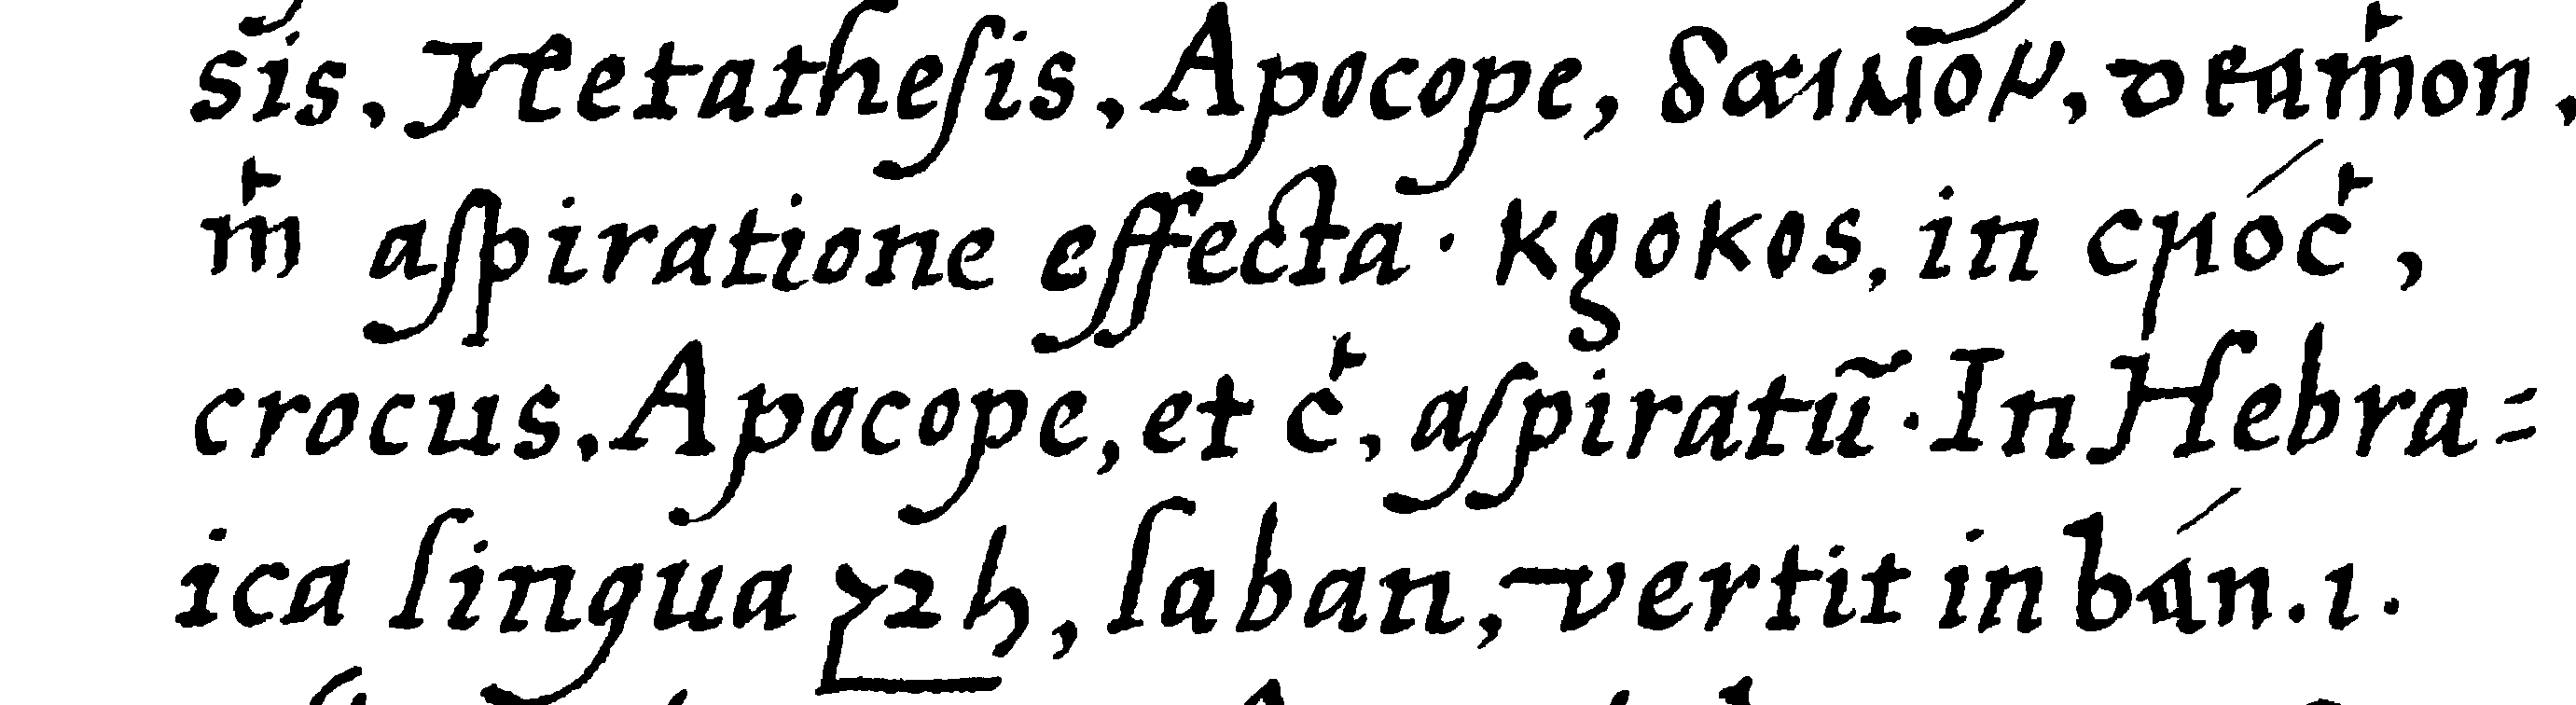 sis. Metatheſis. Apocope, δαιμον, ꝺeaṁon,
ṁ aſpiratione effecta · κροκος. in cꞃóċ,
crocus. Apocope, et ċ, aſpiratū · In Hebra=
ica lingua לבן, laban, vertit in bán .ı.